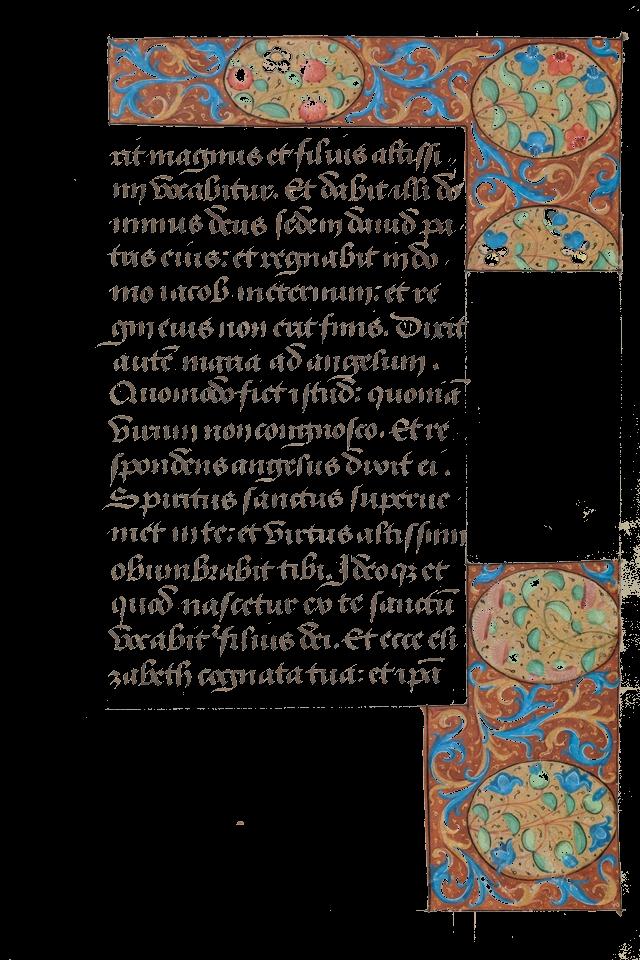 rit magnus et filius altissi-
mi vocabitur. Et dabit illi do
minus deus sedem dauid pa-
tris eius: et regnabit in do-
mo iacob in eternum: et re
gni eius non erit finis. Dixit
autē maria ad angelum.
Quomodo fiet istud: quoniā
virum non congnosco. Et re
spondens angelus dixit ei.
Spiritus sanctus superue
niet in te: et virtus altissimi
obumbrabit tibi. Ideoqz et
quod nascetur ex te sanctū
vocabit᷑ filius dei. Et ecce eli
zabeth cognata tua: et ip̄a